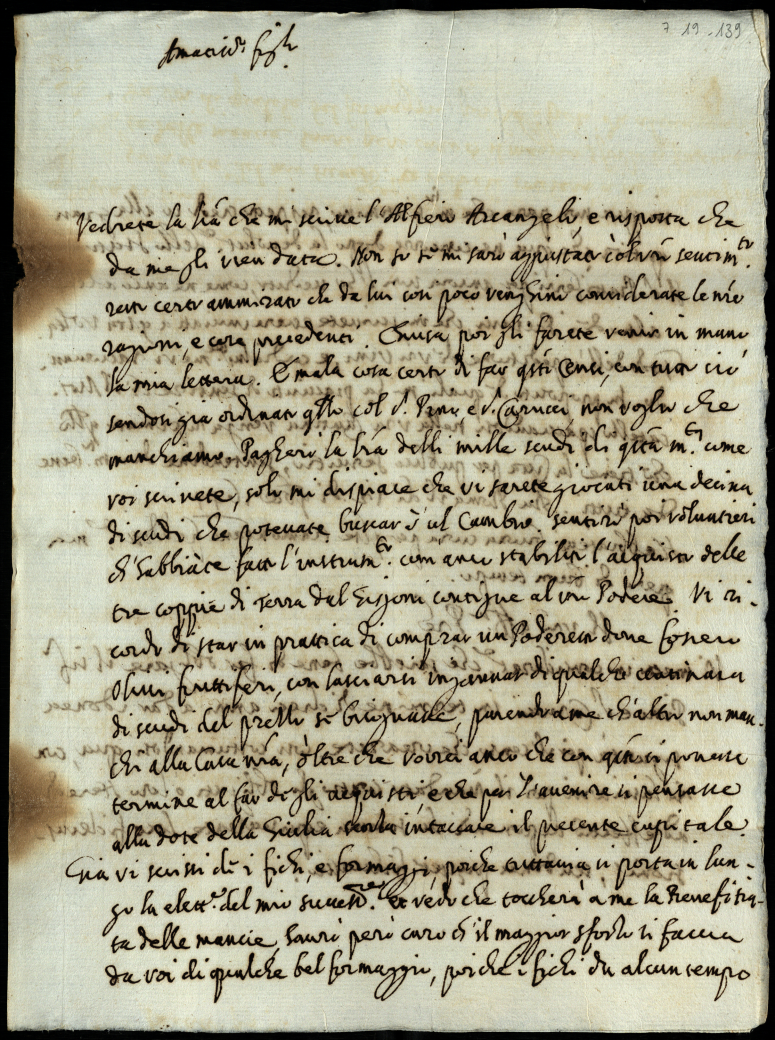 7 19 - 139
Amatis.mi figli
Vedrete la l'ra che mi scrive l'Alfiero Arcangeli, e risposta che
da me gli vien data. Non so se mi sarò aggiustato col vro sentim.to
resto certo ammirato che da lui così poco venghino considerate le nre
ragioni, e cose precedenti. Chiusa poi gli farete venir in mano
la mia lettera. È mala cosa certo di far q'sti Censi, con tutto ciò
sendosi già ordinato q'llo col S.r e S.r Carucci, non voglio che
manchiamo. Pagherò la l'ra delli mille scudi di q'sta m.ta come
voi scrivete, solo mi dispiace che vi sarete giocati una decina
di scudi che potevate buscar co 'l Cambio. Sentirò poi volontieri
ch'habbiate fatto l'instrum.to com'anco stabilito l'acquisto delle
tre coppie di Terra dal contigue al vro Podere. Vi ri-
cordo di star in prattica di comprar un Poderetto dove fossero
Olivi fruttiferi, con lasciarsi ingannar di qualche centinara
di scudi del prezzo se bisognasse, parendo a me ch'altro non man-
chi alla Casa nra, oltre che vorrei anco che con q'sto si ponesse
termine al far degli acquisti, e che per l'avenire si pensasse
alla dote della Giulia senza intaccare il presente capitale.
Già vi scrissi de i fichi, e formaggi, poiche tuttavia si porta in lun-
go la elett.e del mio success.re et vedo che toccherà à me la
ta delle mancie, haurò però caro ch'il maggior sforzo si faccia
da voi di qualche bel formaggio, poiche i fichi da alcun tempo